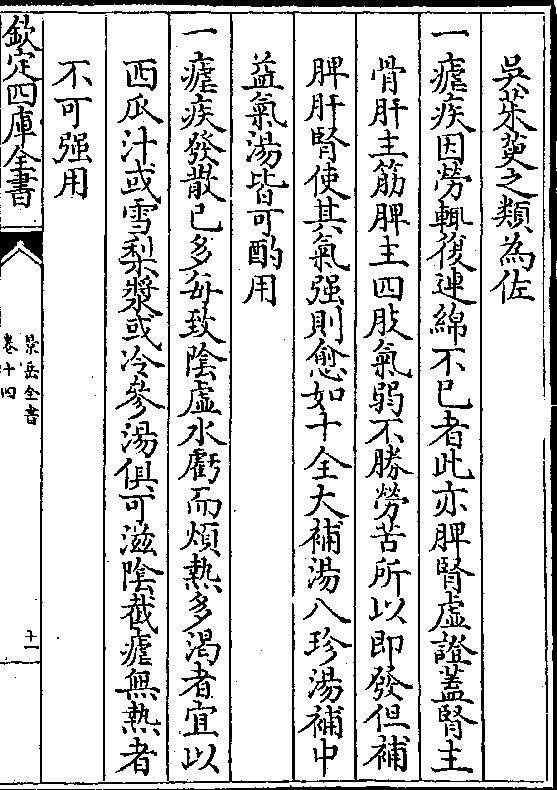 吳茱萸之類為佐
一瘧疾因勞輒復連綿不已者此亦脾腎虛證蓋腎主
骨肝主筋脾主四肢氣弱不勝勞苦所以即發但補
脾肝腎使其氣强則愈如十全大補湯八珍湯補中
益氣湯皆可酌用
一瘧疾發散已多每致陰虛水虧而煩熱多渴者宜以
西瓜汁或雪梨漿或冷參湯俱可滋陰截瘧無熱者
不可强用
欽定四庫全書
景岳全書
卷十四
十一